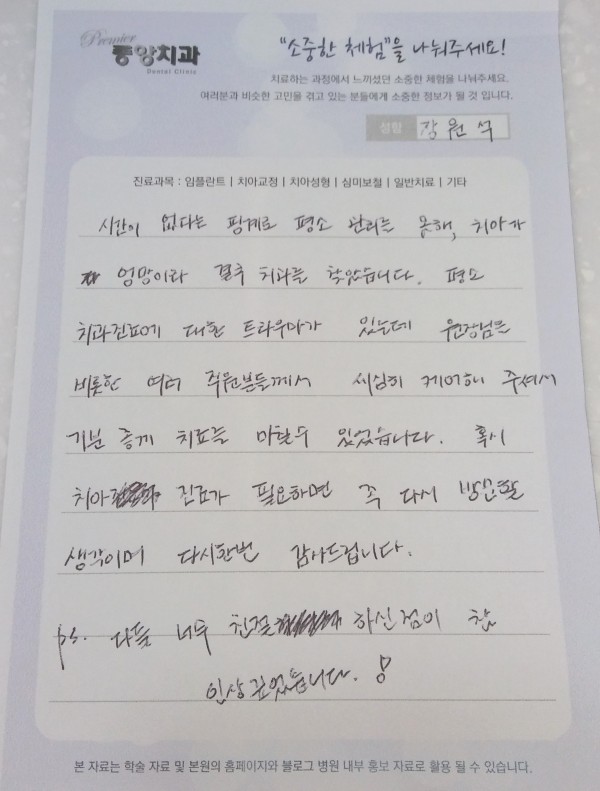 Premier
중앙치과
Dental Clinic
"소중한 체험"을 나눠주세요!
치료하는 과정에서 느끼셨던 소중한 체험을 나눠주세요.
여러분과 비슷한 고민을 겪고 있는 분들에게 소중한 정보가 될 것 입니다.
성함 장원석
진료과목 : 임플란트 | 치아교정 | 치아성형 | 심미보철 | 일반치료 | 기타
시간이 없다는 핑계로 평소 관리를 못해, 치아가
엉망이라 결국 치과를 찾았습니다. 평소
치과진료에 대한 트라우마가 있는데 원장님을
비롯한 여러 직원분들께서 세심히 케어해 주셔서
기분 좋게 치료를 마칠수 있었습니다. 혹시
치아 진료가 필요하면 꼭 다시 방문할
생각이며 다시한번 감사드립니다.
ps. 다들 너무 친절 하신점이 참
인상 깊었습니다.
본 자료는 학술 자료 및 본원의 홈페이지와 블로그 병원 내부 홍보 자료로 활용 될 수 있습니다.